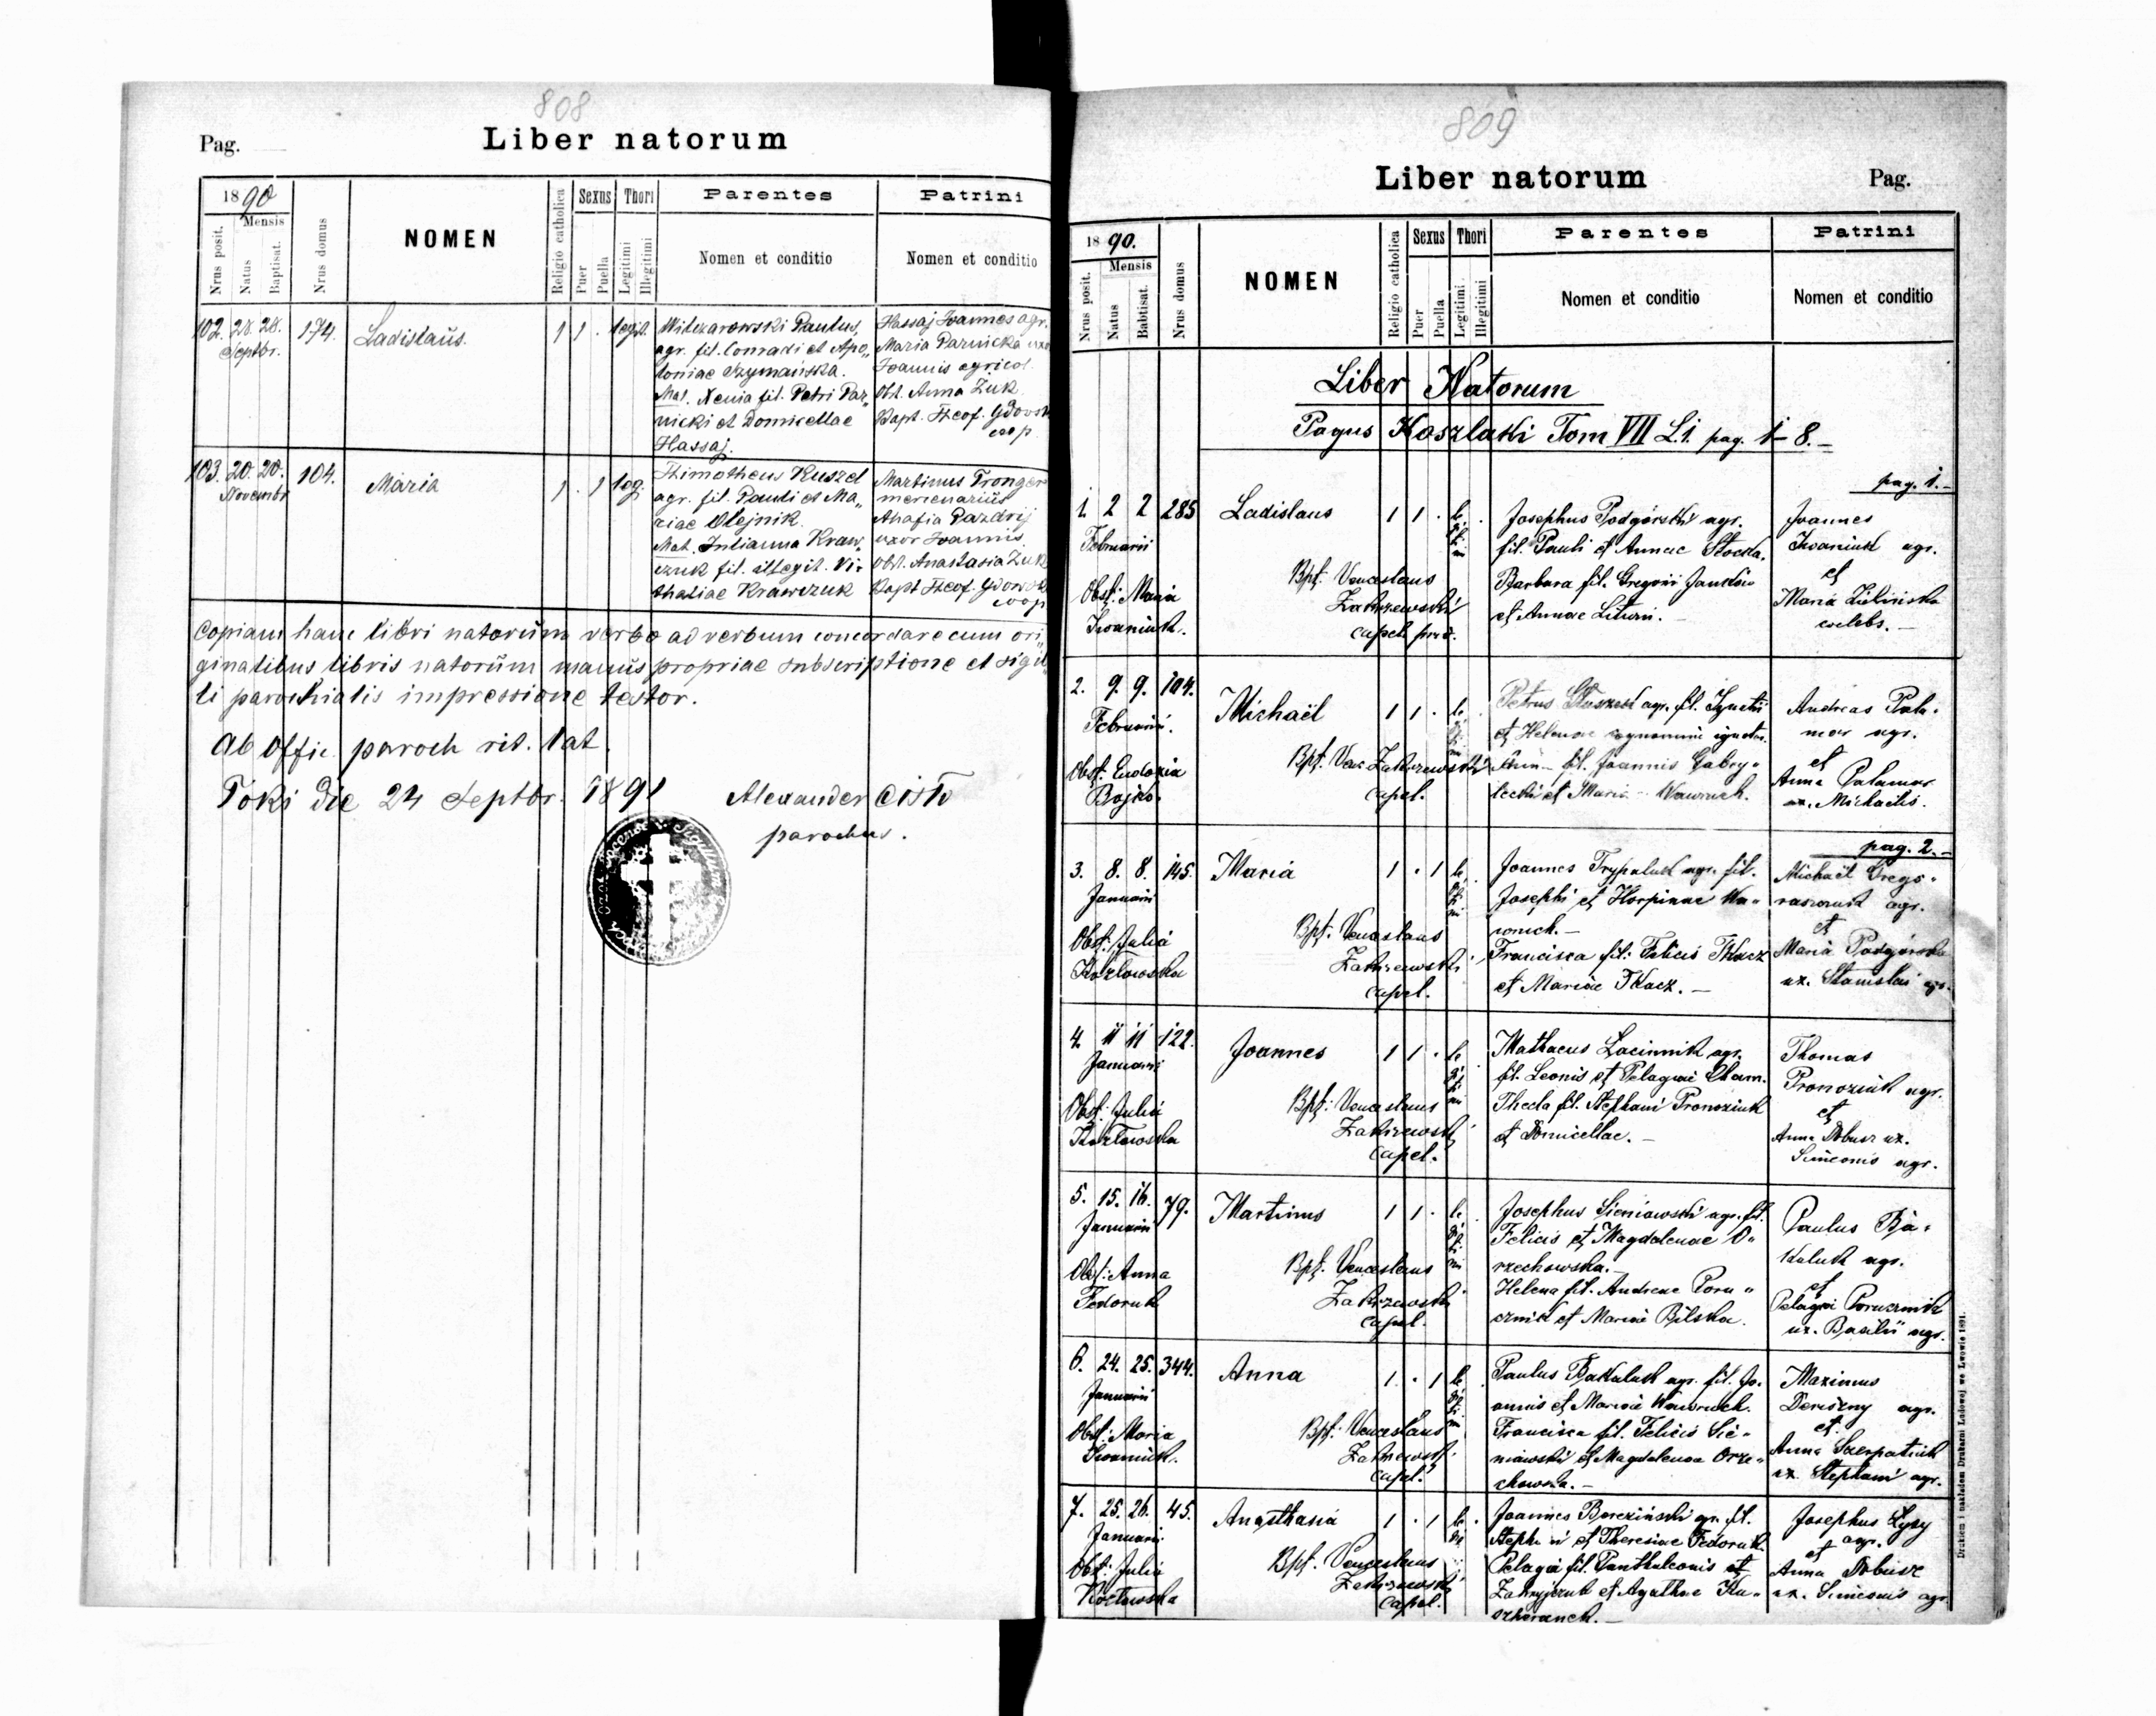 808
Pag.
Liber natorum
1890
Mensis
Nrus posit.
Natus
Baptisat.
Nrus domus
NOMEN
Religio catholica
Sexus
Puer
Puella
Thori
Legitimi
Illegitimi
Parentes
Nomen et conditio
Patrini
Nomen et conditio
102. 28. 28. 174. Ladislaus. 1 1 . legit.
Septbr.
Wilczarowski Paulus,
agr. fil. Conradi et Apo„
loniae Szymańska.
Mat. Xenia fil. Petri Par„
nicki et Domicellae
Hassaj.
Hassaj Joannes agr.
Maria Parnicka uxo
Joannis agricol.
Obst. Anna Żuk
Bapt. Theof. Gdovsk
coop
103. 20. 20. 104. Maria 1 . 1 leg.
Novembr
Thimotheus Kuszel
agr. fil. Pauli et Ma„
riae Olejnik.
Mat. Julianna Kraw„
czuk fil. illegit. Vi-
thaliae Krawczuk
Martinus Tronger
mercenarius
Ahafia Pazdrij
uxor Joannis
Obst. Anastasia Żuk
Bapt Theof. Gdowsk
coop
Copiam hanc libri natorum verbo ad verbum concordare cum ori„
ginalibus libris natorum manus propriae subscriptione et sigil„
li parochialis impressione testor.
Ab offic. paroch rit. lat.
Toki die 24 Septbr. 1891 Alexander Cisło
parochus.
809
Liber natorum
Pag.
1890.
Mensis
Nrus posit.
Natus
Babtisat.
Nrus domus
NOMEN
Religio catholica
Sexus
Puer
Puella
Thori
Legitimi
Illegitimi
Parentes
Nomen et conditio
Patrini
Nomen et conditio
Liber Natorum
Pagus Koszlaki Tom VII L.1. pag. 1-8.-
pag. 1.-
1. 2 2 285 Ladislaus 1 1 . legitimi
Februarii
Obst: Maria
Iwaniuk.
Bpt. Venceslaus
Zakrzewski
capel.
Josephus Podgórski agr.
fil. Pauli et Annae
Barbara fil. Gregorii
et Annae
Joannes
Iwaniuk agr.
et
Maria Zielińska
coelebs.-
2. 9. 9. 104. Michaël 1 1 . legitimi
Februarii.
Obst: Eudoxia
Bojko.
Bpt. Ven. Zakrzewski
capel.
Petrus agr. fil. Ignatii
et Helenae cognomine ignotae.
fil. Joannis
et Maria Wawruch.
Andreas Pala-
mar agr.
et
Anna Palamar
ux. Michaelis.
pag. 2.-
3. 8. 8. 145. Maria 1 . 1 legitimi
Januarii
Obst: Julia
Kozłowska
Bpt. Venceslaus
Zakrzewski
capel.
Joannes Trypaluk agr. fil.
Josephi et Horpinae Wa„
wruch.-
Francisca fil: Felicis Tkacz
et Mariae Tkacz.-
Michaël Grego-
raszczuk agr.
et
Maria Podgórska
ux. Stanislai agr.
4. 11 11 122. Joannes 1 1 . legitimi
Januarii
Obst: Julia
Kozłowska
Bpt: Venceslaus
Zakrzewski
capel.
Mathaeus Łacinnik agr.
fil. Leonis et Pelagiae Cham.
Thecla fil. Stephani Pronoziuk
et Domicellae.-
Thomas
Pronoziuk agr.
et
Anna Dobusz ux.
Simeonis agr.
5. 15. 16. 79. Martinus 1 1 . legitimi
Januarii
Obst: Anna
Fedoruk
Bpt. Venceslaus
Zakrzewski
capel.
Josephus Sieniawski agr. fil.
Felicis et Magdalenae O„
rzechowska.-
Helena fil. Andreae Poru„
cznik et Mariae Bilska.
Paulus Ba-
kaluk agr.
et
Pelagia Porucznik
ux. Basilii agr.
6. 24. 25. 344. Anna 1 . 1 legitimi
Januarii
Obst: Maria
Iwaniuk.
Bpt: Venceslaus
Zakrzewski
capel.
Paulus Bakaluk agr. fil. Jo-
annis et Mariae Wawruch.
Francisca fil. Felicis Sie-
niawski et Magdalenae Orze„
chowska.-
Maximus
agr.
et
Anna
ux. Stephani agr.
7. 25. 26. 45. Anasthasia 1 . 1
Januarii
Obst: Julia
Kozłowska
Bpt. Venceslaus
Zakrzewski
capel.
Joannes Bereziński agr. fil.
Stephani et Theresiae Fedoruk.
Pelagia fil. Panthaleonis et
et Agathae
Josephus Łysy
agr.
et
Anna Dobusz
ux. Simeonis agr.
Drukiem i nakładem Drukarni Ludowej we Lwowie 1891.